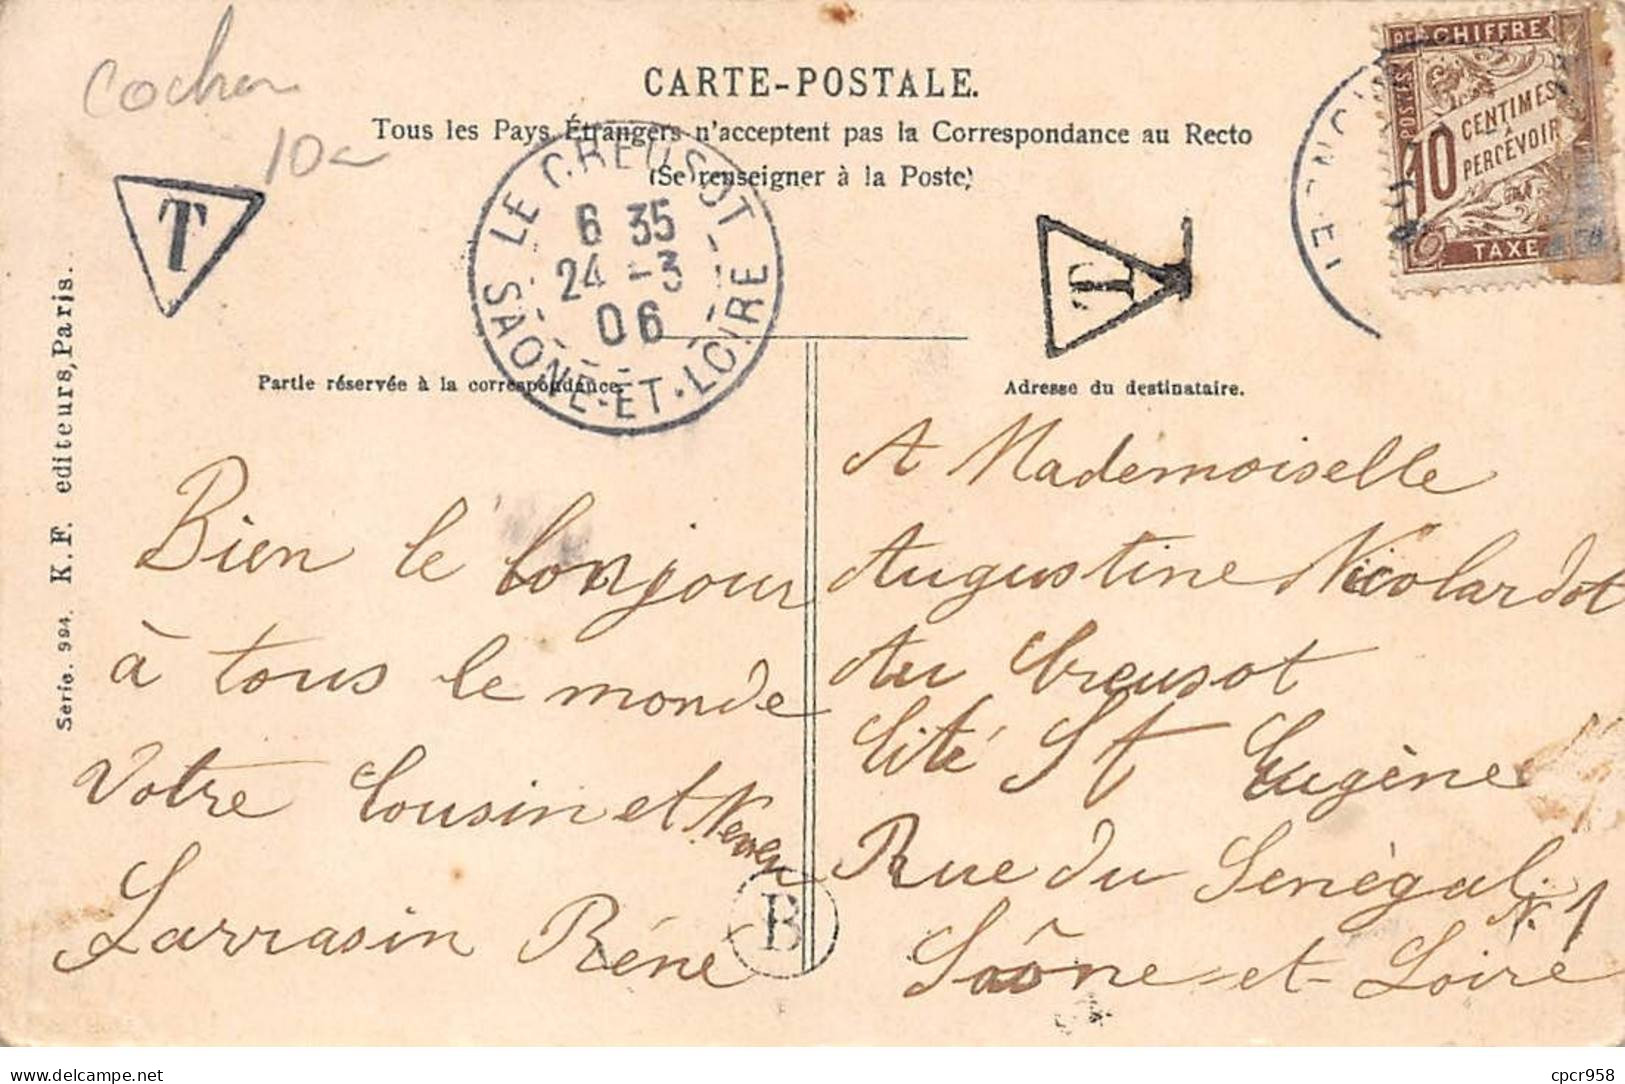 cocher
10
CARTE-POSTALE.
Tous les Pays Étrangers n'acceptent pas la Correspondance au Recto
(Se renseigner à la Poste)
T
T
LE CREUSOT
6 35
24 - 3
06
SAONE-ET-LOIRE
POSTES
CHIFFRE
10
CENTIMES
A
PERCEVOIR
TAXE
Serie. 994. K. F. editeurs, Paris.
Partie réservée à la correspondance.
Adresse du destinataire.
Bien le bonjour
à tous le monde
Votre Cousin et Neveu
Larrasin Réné
B
A Mademoiselle
Augustine Nicolardot
Au Creusot
Cité St Eugène
Rue du Sénégal N. 1
Saône-et-Loire
delcampe.net
cpcr958